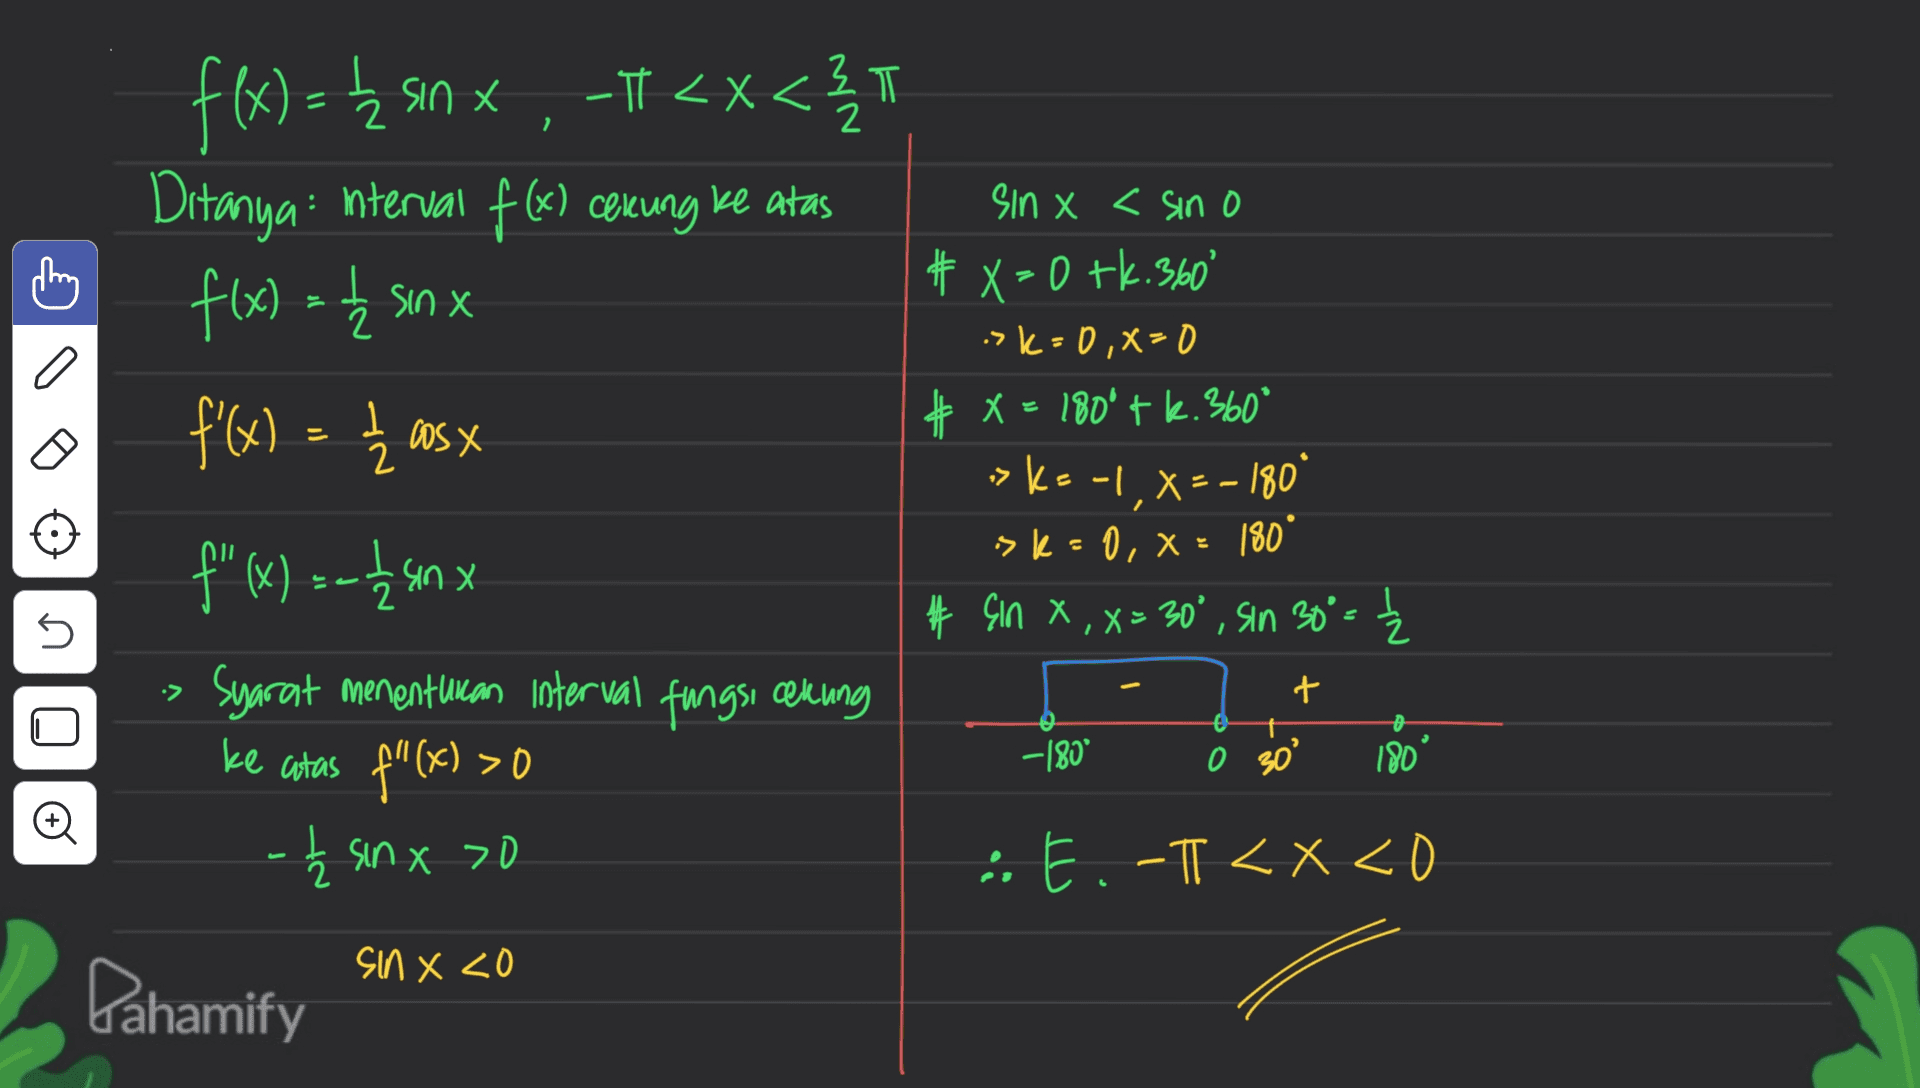 f(x) = 1/2 sin x , -π < x < 3/2 π
Ditanya : interval f(x) cekung ke atas
f(x) = 1/2 sin x
f'(x) = 1/2 cos x
f''(x) = -1/2 sin x
.> Syarat menentukan interval fungsi cekung
ke atas f''(x) > 0
- 1/2 sin x > 0
sin x < 0
sin x < sin 0
# x = 0 + k.360°
.> k = 0, x = 0
# x = 180° + k.360°
.> k = -1, x = -180°
.> k = 0, x = 180°
# sin x, x = 30°, sin 30° = 1/2
- +
-180° 0 30° 180°
∴ E. -π < x < 0
Pahamify